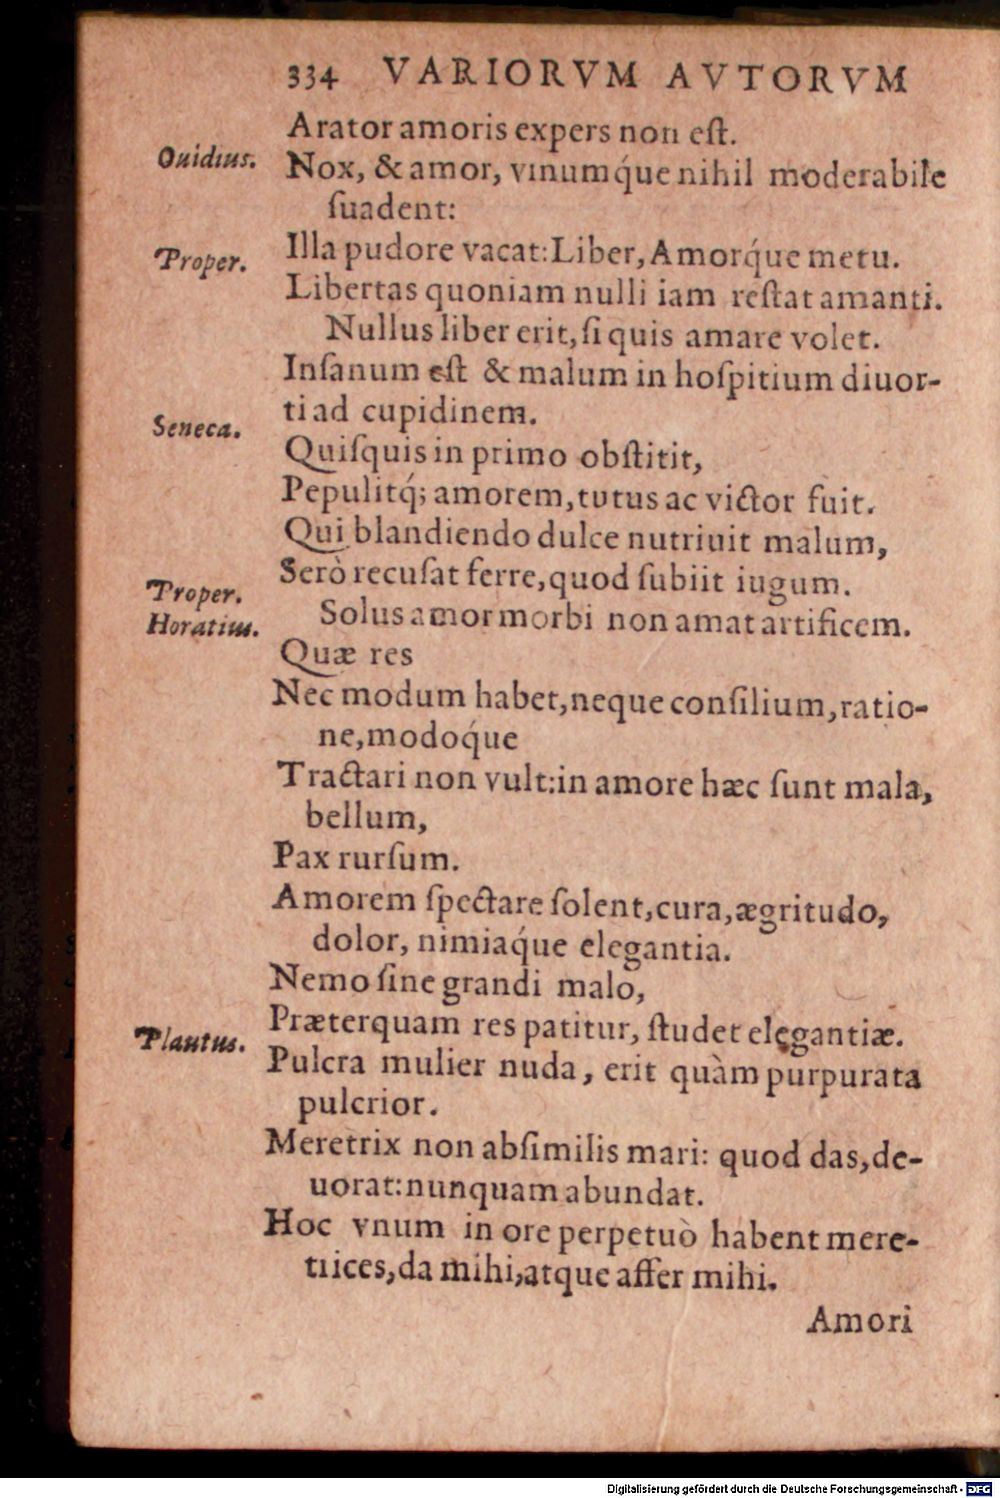 334 VARIORVM AVTORVM
Arator amoris expers non eſt.
Ouidius.
Nox, & amor, vinumq́ue nihil moderabile
ſuadent:
Proper.
Illa pudore vacat: Liber, Amorq́ue metu.
Libertas quoniam nulli iam reſtat amanti.
Nullus liber erit, ſi quis amare volet.
Inſanum eſt & malum in hoſpitium diuor-
ti ad cupidinem.
Seneca.
Quiſquis in primo obſtitit,
Pepulitq́; amorem, tutus ac victor fuit.
Qui blandiendo dulce nutriuit malum,
Serò recuſat ferre, quod ſubiit iugum.
Proper.
Solus amor morbi non amat artificem.
Horatius.
Quæ res
Nec modum habet, neque conſilium, ratio-
ne, modoq́ue
Tractari non vult: in amore hæc ſunt mala,
bellum,
Pax rurſum.
Amorem ſpectare ſolent, cura, ægritudo,
dolor, nimiaq́ue elegantia.
Nemo ſine grandi malo,
Præterquam res patitur, ſtudet elegantiæ.
Plautus.
Pulcra mulier nuda, erit quàm purpurata
pulcrior.
Meretrix non abſimilis mari: quod das, de-
uorat: nunquam abundat.
Hoc vnum in ore perpetuò habent mere-
trices, da mihi, atque affer mihi.
Amori
Digitalisierung gefördert durch die Deutsche Forschungsgemeinschaft - DFG